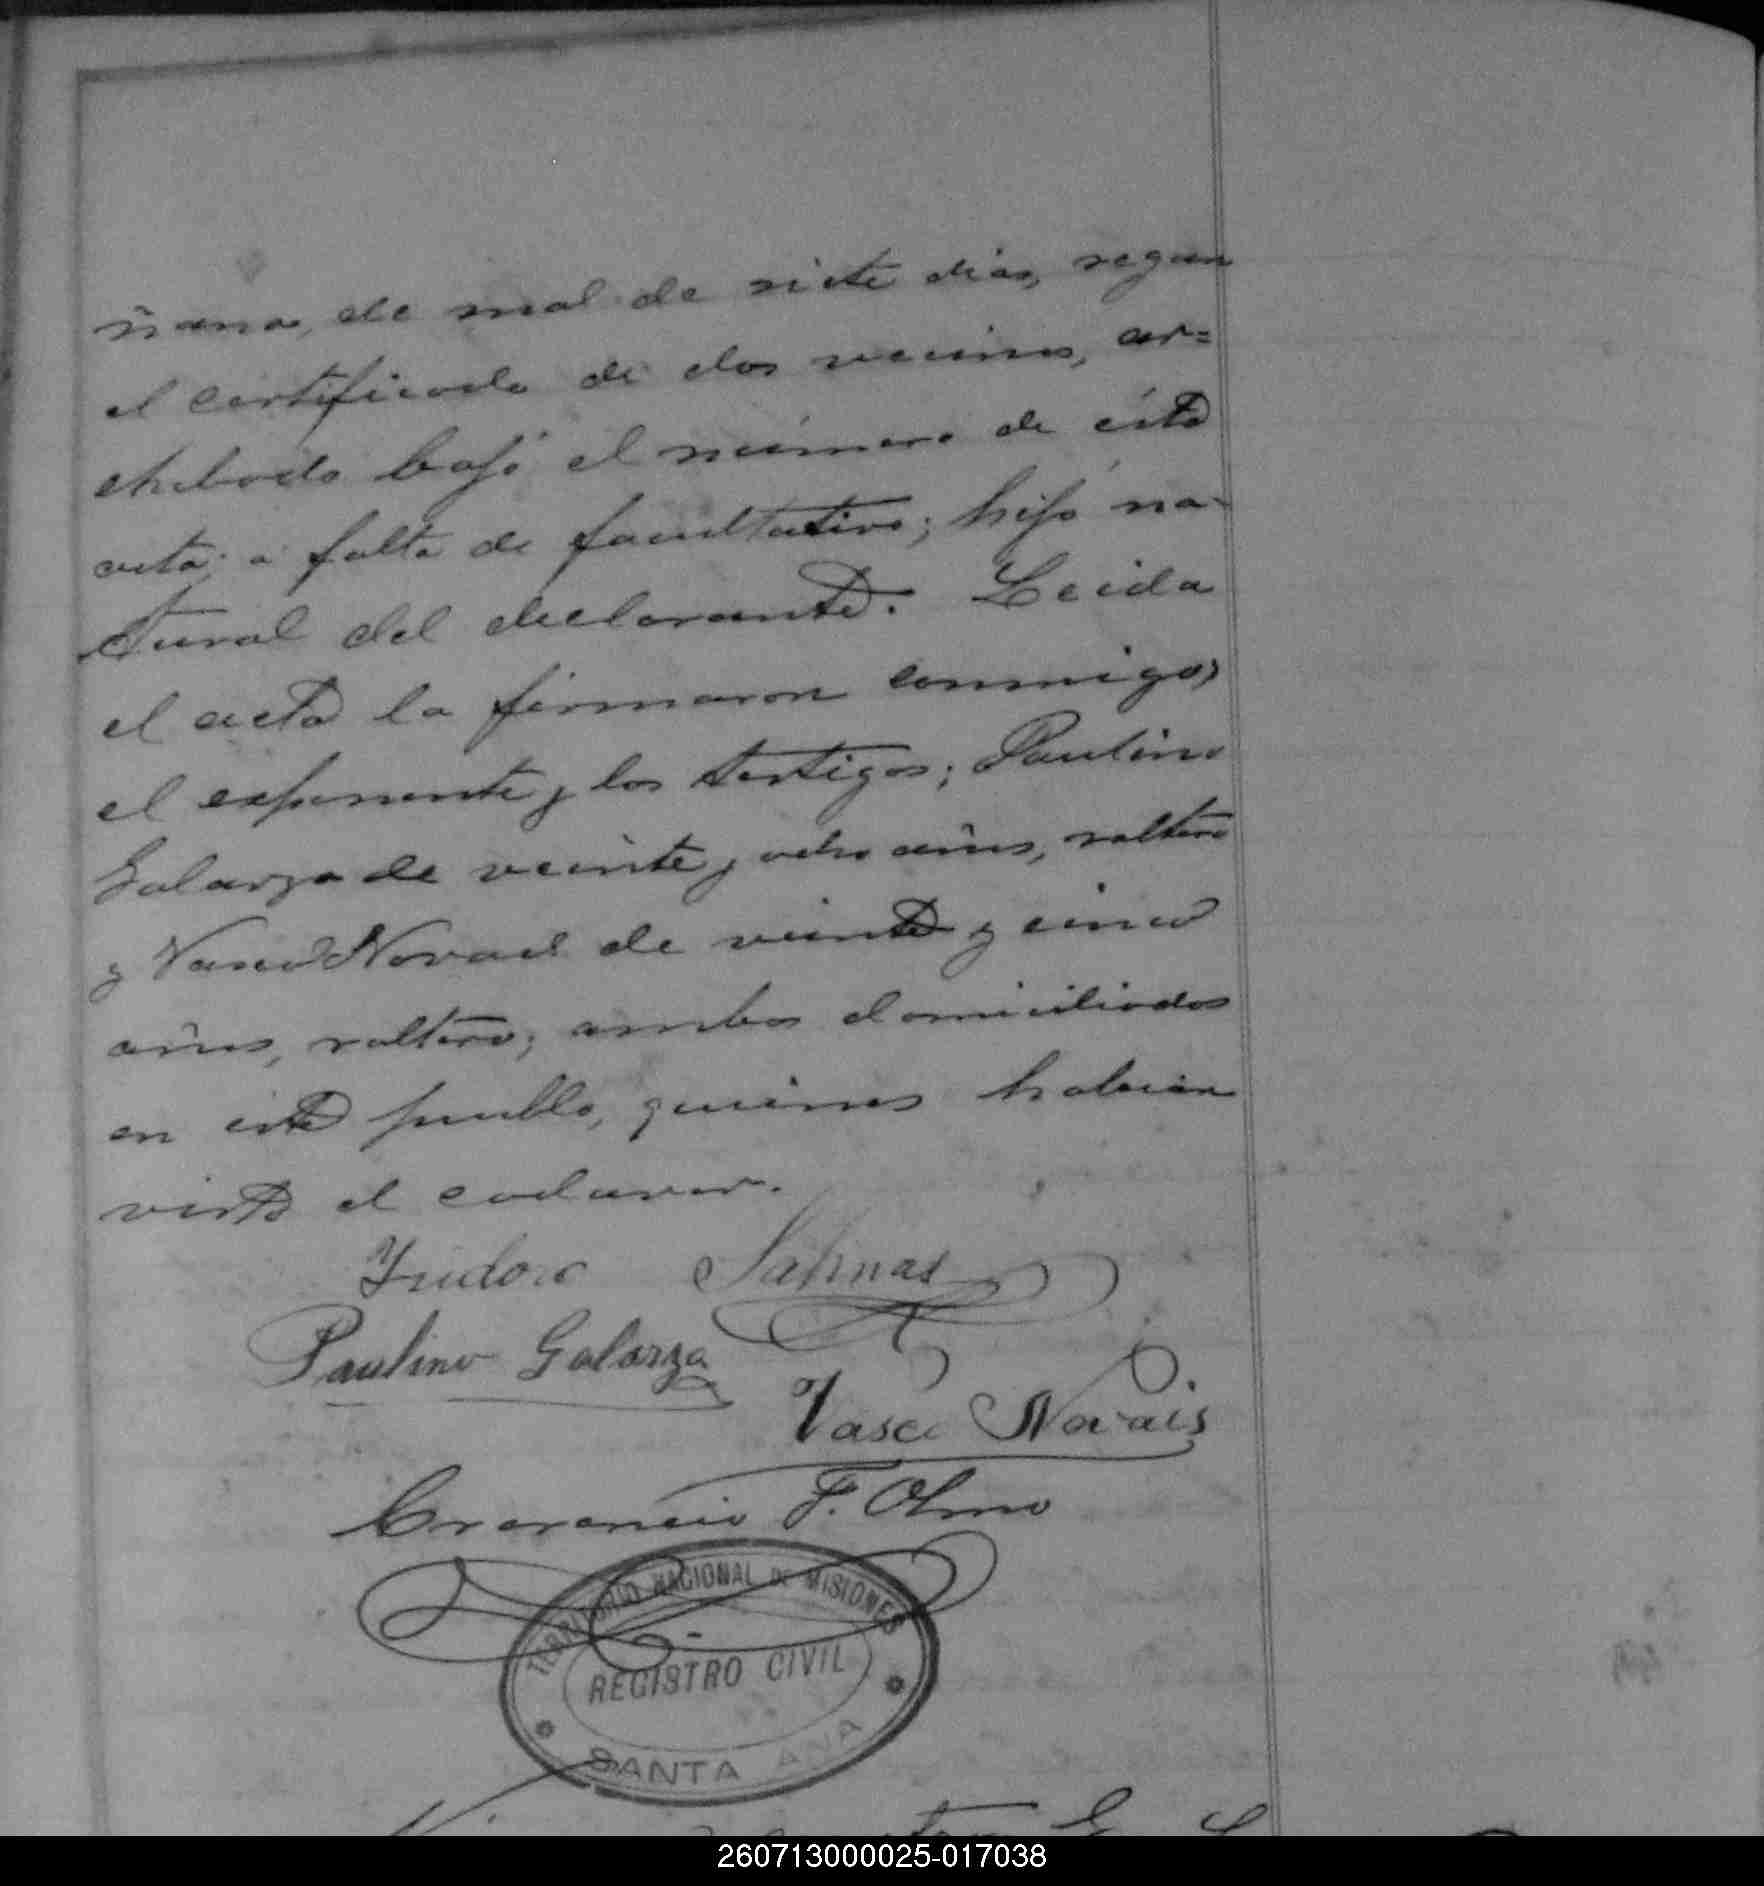 ñana, de mal de siete dias, segun
el certificado de dos vecinos, ar=
chibado bajo el número de ésta
acta, a falta de facultativo; hijo na-
tural del declarante. Leida
el acta la firmaron conmigo,
el exponente y los testigos; Paulino
Galarza de veinte y ocho años, soltero
y Vasco Novaes de veinte y cinco
años, soltero; ambos domiciliados
en este pueblo, quienes habian
visto el cadaver.
Isidoro Salinas
Paulino Galarza
Vasco Novais
F. Olmo
TERRITORIO NACIONAL DE MISIONES
REGISTRO CIVIL
SANTA ANA
260713000025-017038